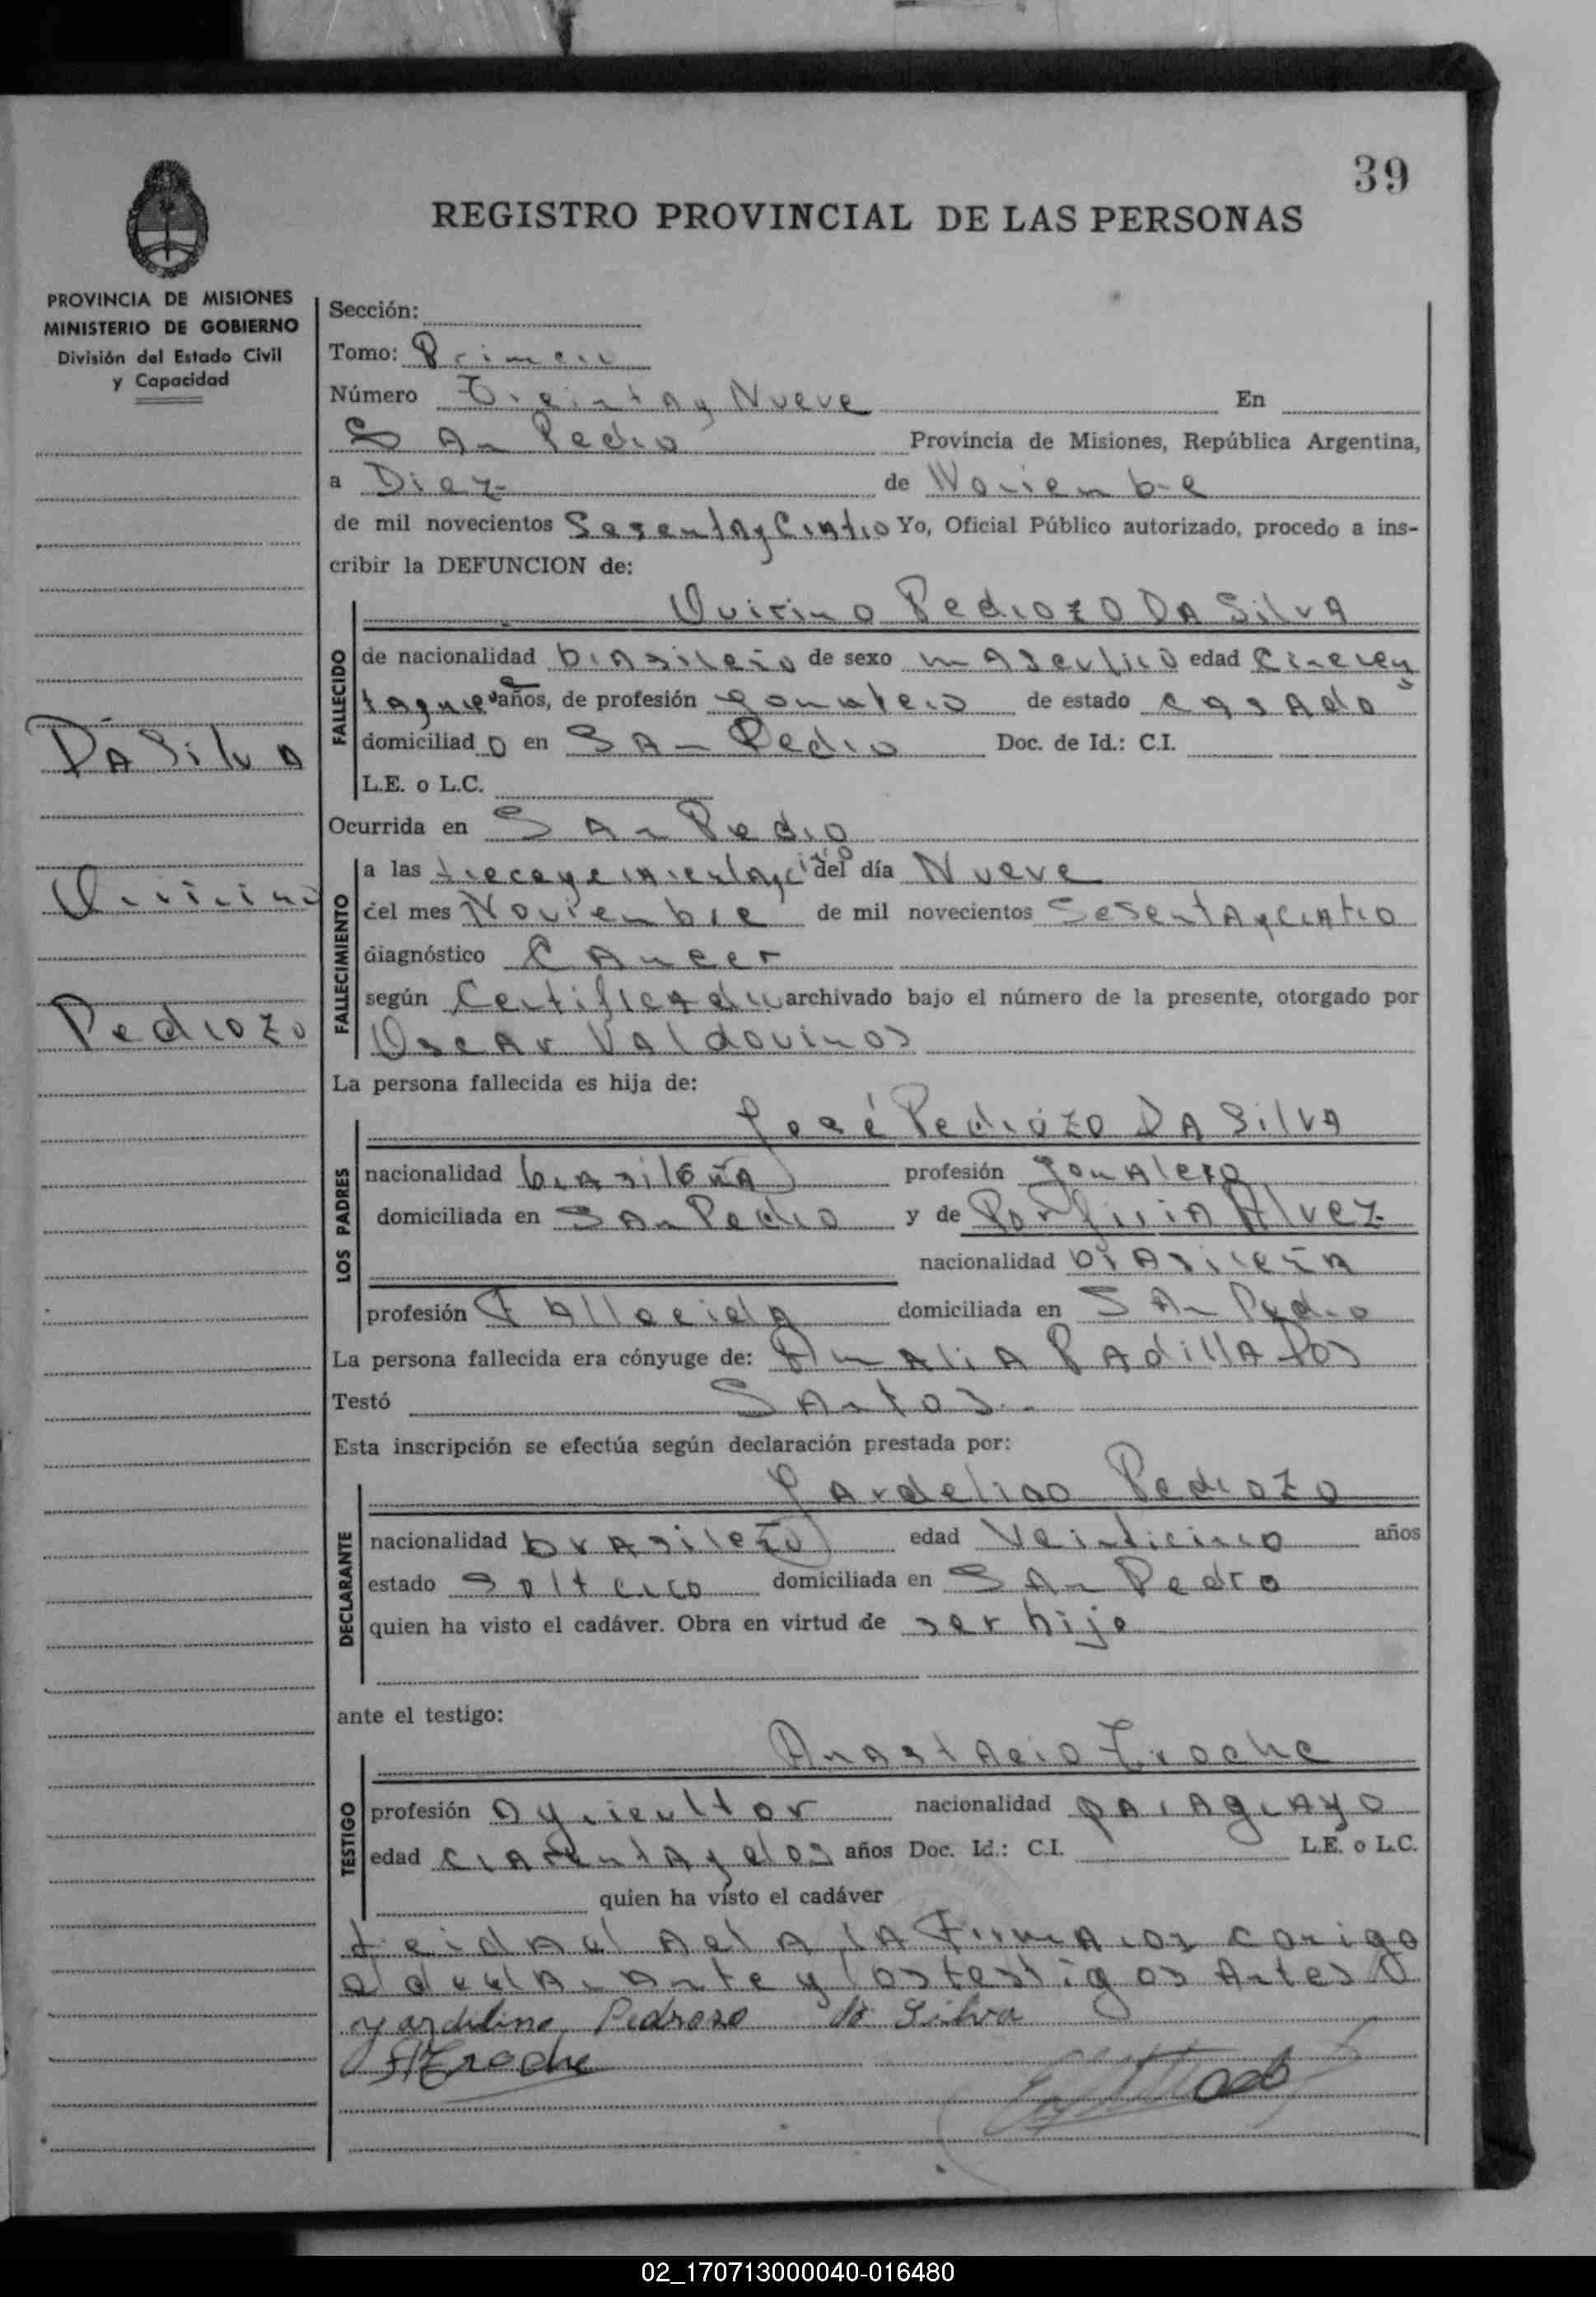 39
REGISTRO PROVINCIAL DE LAS PERSONAS
PROVINCIA DE MISIONES
MINISTERIO DE GOBIERNO
División del Estado Civil
y Capacidad
Da Silva
Quirino
Pedrozo
Sección:
Tomo: Primero
Número Treinta y Nueve En
San Pedro Provincia de Misiones, República Argentina,
a Diez de Noviembre
de mil novecientos Sesenta y Cuatro Yo, Oficial Público autorizado, procedo a ins-
cribir la DEFUNCION de:
Quirino Pedrozo DA Silva
FALLECIDO
de nacionalidad brasileño de sexo masculino edad
años, de profesión jornalero de estado casado
domiciliad o en San Pedro Doc. de Id.: C.I.
L.E. o L.C.
Ocurrida en San Pedro
FALLECIMIENTO
a las del día Nueve
del mes Noviembre de mil novecientos Sesenta y Cuatro
diagnóstico Cancer
según Certificado archivado bajo el número de la presente, otorgado por
Oscar Valdovinos
La persona fallecida es hija de:
José Pedrozo DA Silva
LOS PADRES
nacionalidad brasileña profesión Jornalero
domiciliada en San Pedro y de Porfiria Alvez
nacionalidad brasileña
profesión Fallecida domiciliada en San Pedro
La persona fallecida era cónyuge de: Amalia Padilla Dos
Testó Santos
Esta inscripción se efectúa según declaración prestada por:
Jardelino Pedrozo
DECLARANTE
nacionalidad brasileño edad Veinticinco años
estado Soltero domiciliada en San Pedro
quien ha visto el cadáver. Obra en virtud de ser hijo
ante el testigo:
Anastacio Troche
TESTIGO
profesión Agricultor nacionalidad paraguayo
edad cuarenta y dos años Doc. Id.: C.I. L.E. o L.C.
quien ha visto el cadáver
Leida el Acta la Firman conmigo
el declarante y los testigos Antes
yardelino Pedrozo da Silva
A Troche
02_170713000040-016480